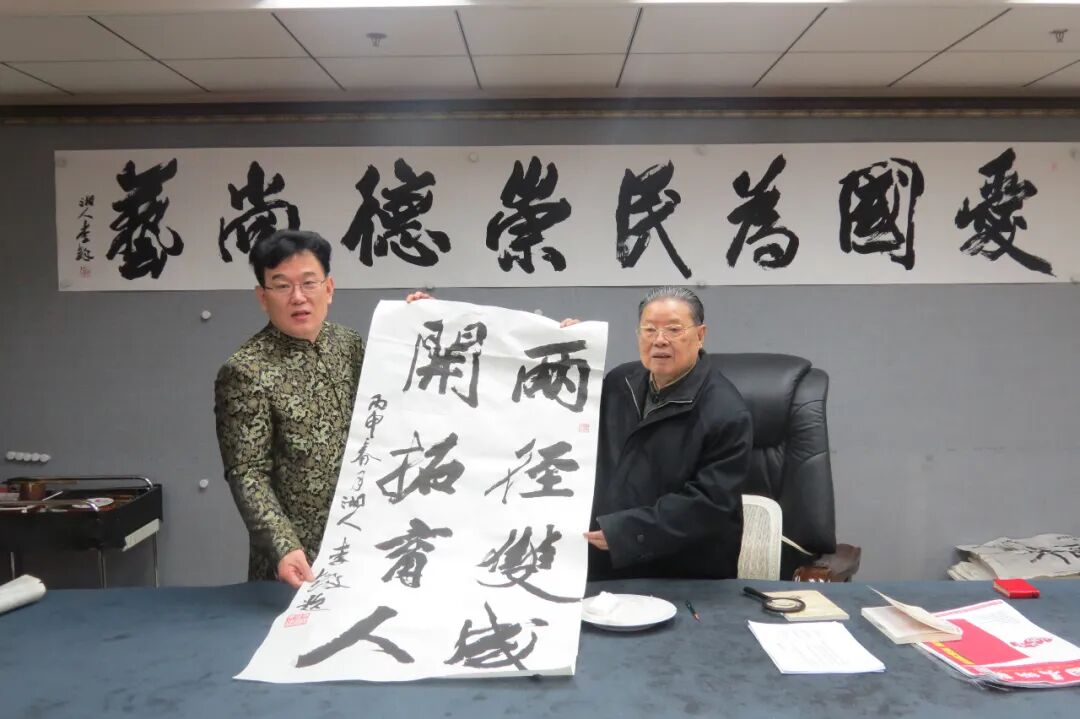 愛國為民崇德尚藝
湘人李鐸
两径雙成
開拓育人
丙申春月湘人李鐸題